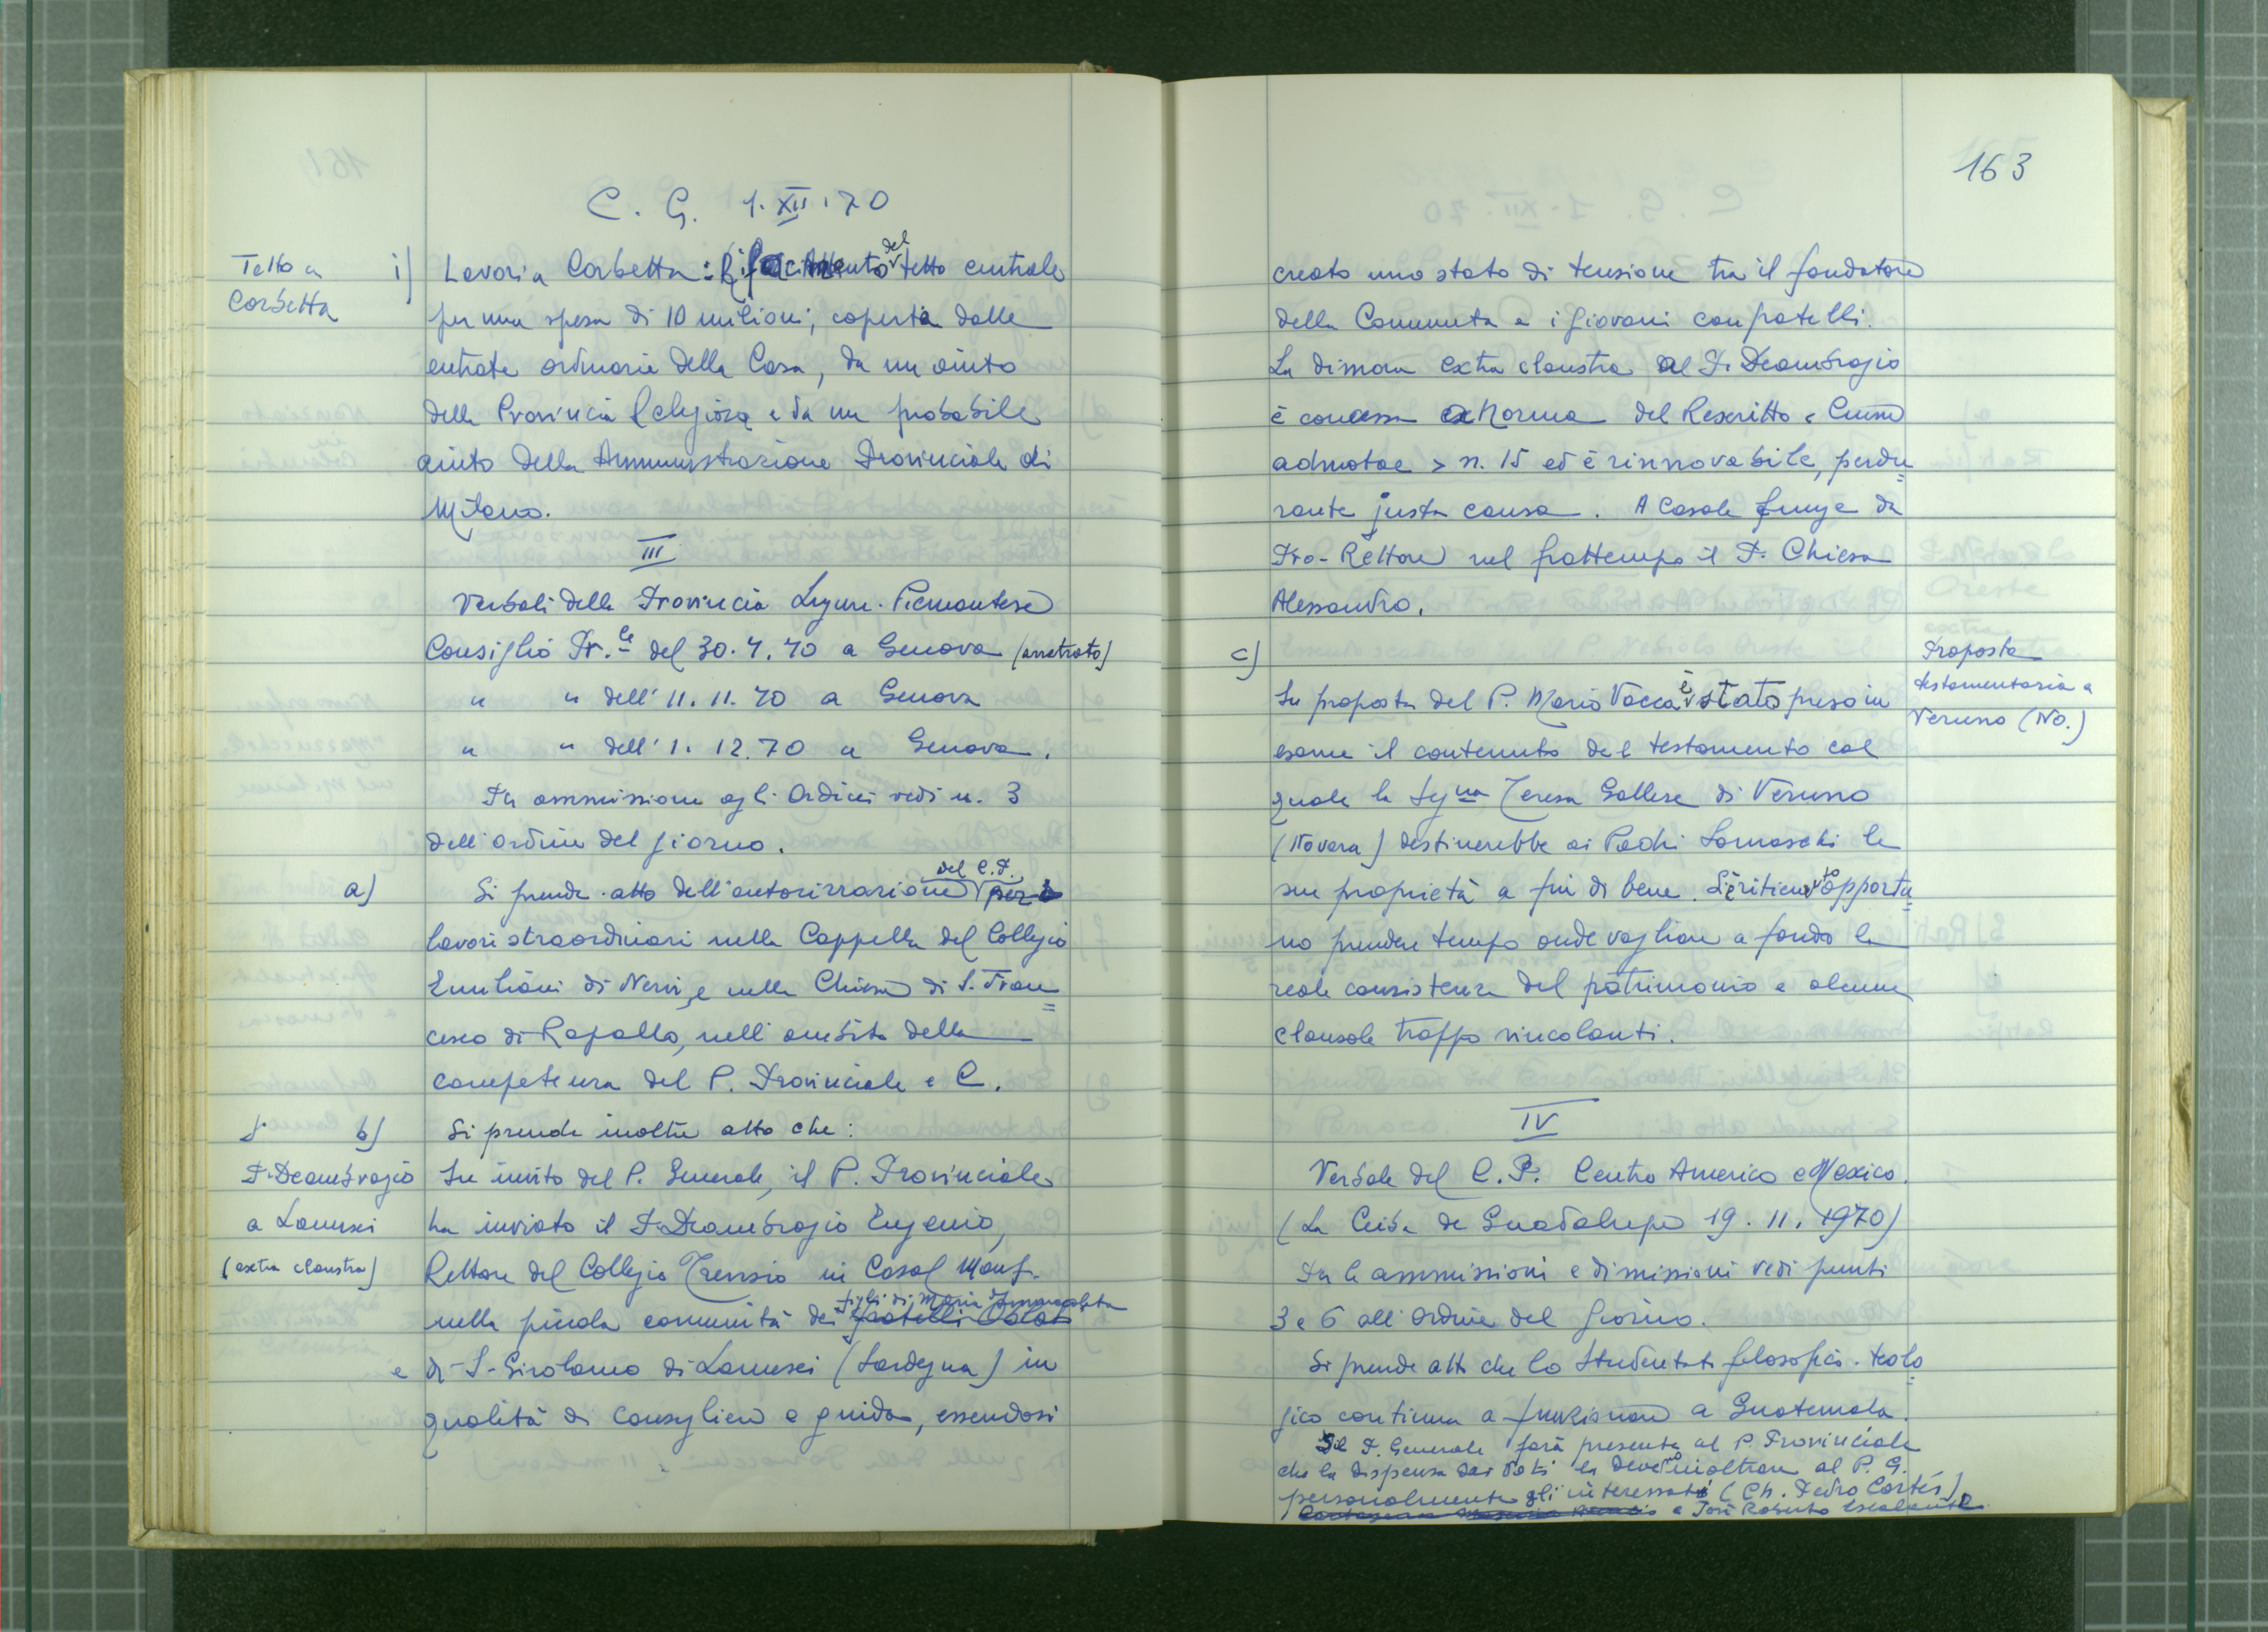 C. G. 1. XII. 70
Tetto a
Corbetta
i) Lavori a Corbetta: Rifacimento del tetto centrale
per una spesa di 10 milioni, coperta dalle
entrate ordinarie della Casa, da un aiuto
della Provincia Religiosa e da un probabile
aiuto della Amministrazione Provinciale di
Milano.
III
Verbali della Provincia Ligure-Piemontese
Consiglio Pr.le del 30.7.70 a Genova (arretrato)
" " dell' 11.11.70 a Genova
" " dell' 1.12.70 a Genova.
Per ammissione agli Ordini vedi n. 3
dell'ordine del giorno.
a) Si prende atto dell'autorizzazione del C.P. per
lavori straordinari nella Cappella del Collegio
Emiliani di Nervi, e nella Chiesa di S. Fran=
cesco di Rapallo, nell'ambito della
competenza del P. Provinciale e C.
b) Si prende inoltre atto che:
P. Deambrogio
a Lanusei
(extra claustra)
Su invito del P. Generale, il P. Provinciale
ha inviato il P. Deambrogio Eugenio,
Rettore del Collegio Trevisio in Casal Monf.
nella piccola comunità dei figli di Maria Immacolata
fratelli Oblati
e di S. Girolamo di Lanusei (Sardegna) in
qualità di consigliere e guida, essendosi
163
creato uno stato di tensione tra il fondatore
della Comunità e i giovani confratelli.
La dimora extra claustra al P. Deambrogio
è concessa ex Norma del Rescritto « Cum
admotae » n. 15 ed è rinnovabile, perdu=
rante justa causa. A Casale funge da
Pro-Rettore nel frattempo il P. Chiesa
Alessandro.
c)
Proposta
testamentaria a
Veruno (No.)
Su proposta del P. Mario Vacca è stato preso in
esame il contenuto del testamento col
quale la Sig.na Teresa Gallese di Veruno
(Novara) destinerebbe ai Padri Somaschi le
sue proprietà a fin di bene. Si è ritenuto opportu=
no prendere tempo onde vagliare a fondo la
reale consistenza del patrimonio e alcune
clausole troppo vincolanti.
IV
Verbale del C.P. Centro America e Mexico.
(La Ceiba de Guadalupe 19.11.1970)
Per le ammissioni e dimissioni vedi punti
3 e 6 all'ordine del giorno.
Si prende atto che lo Studentato filosofico-teolo=
gico continua a funzionare a Guatemala.
Il P. Generale farà presente al P. Provinciale
che la dispensa dai Voti la devono inoltrare al P. G.
personalmente gli interessati (Ch. Pedro Cortés)
e José Roberto Escalante